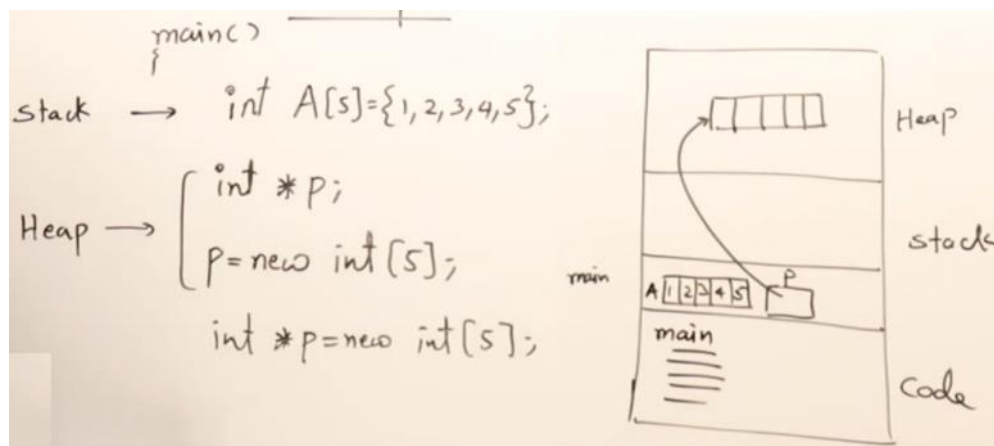 main()
{
Stack → int A[5]={1,2,3,4,5};
Heap → { int *p;
p=new int[5];
int *p=new int[5];
Heap
Stack
main A 1 2 3 4 5 P
main
Code